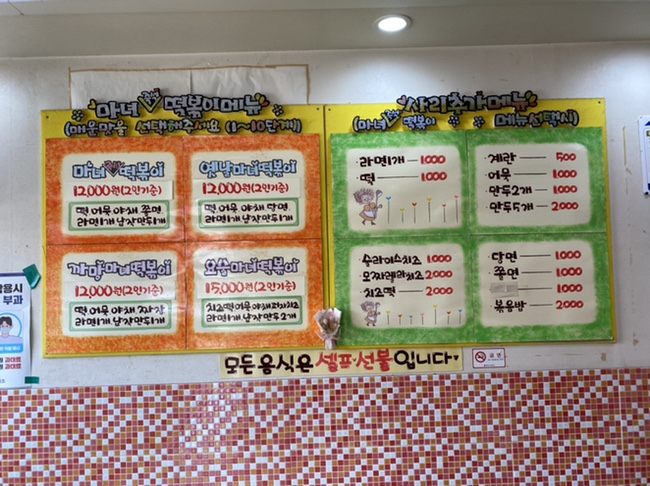 마녀 떡볶이메뉴
(매운맛을 선택해주세요 (1~10단계))
마녀 떡볶이
12,000원(2인기준)
떡 어묵 야채 쫄면
라면1개 납작만두1개
옛날마녀떡볶이
12,000원(2인기준)
떡 어묵 야채 당면
라면1개 납작만두1개
까망마녀떡볶이
12,000원(2인기준)
떡 어묵 야채 짜장
라면1개 납작만두1개
요쑬마녀떡볶이
15,000원(2인기준)
치즈떡 어묵 야채
라면1개 납작만두2개
사리추가메뉴
(마녀 떡볶이 메뉴선택시)
라면1개 1000
떡 1000
계란 500
어묵 1000
만두2개 1000
만두5개 2000
슬라이스치즈 1000
모짜레라치즈 2000
치즈떡 2000
당면 1000
쫄면 1000
1000
볶음밥 2000
모든 음식은 셀프·선불입니다
금연
과태료